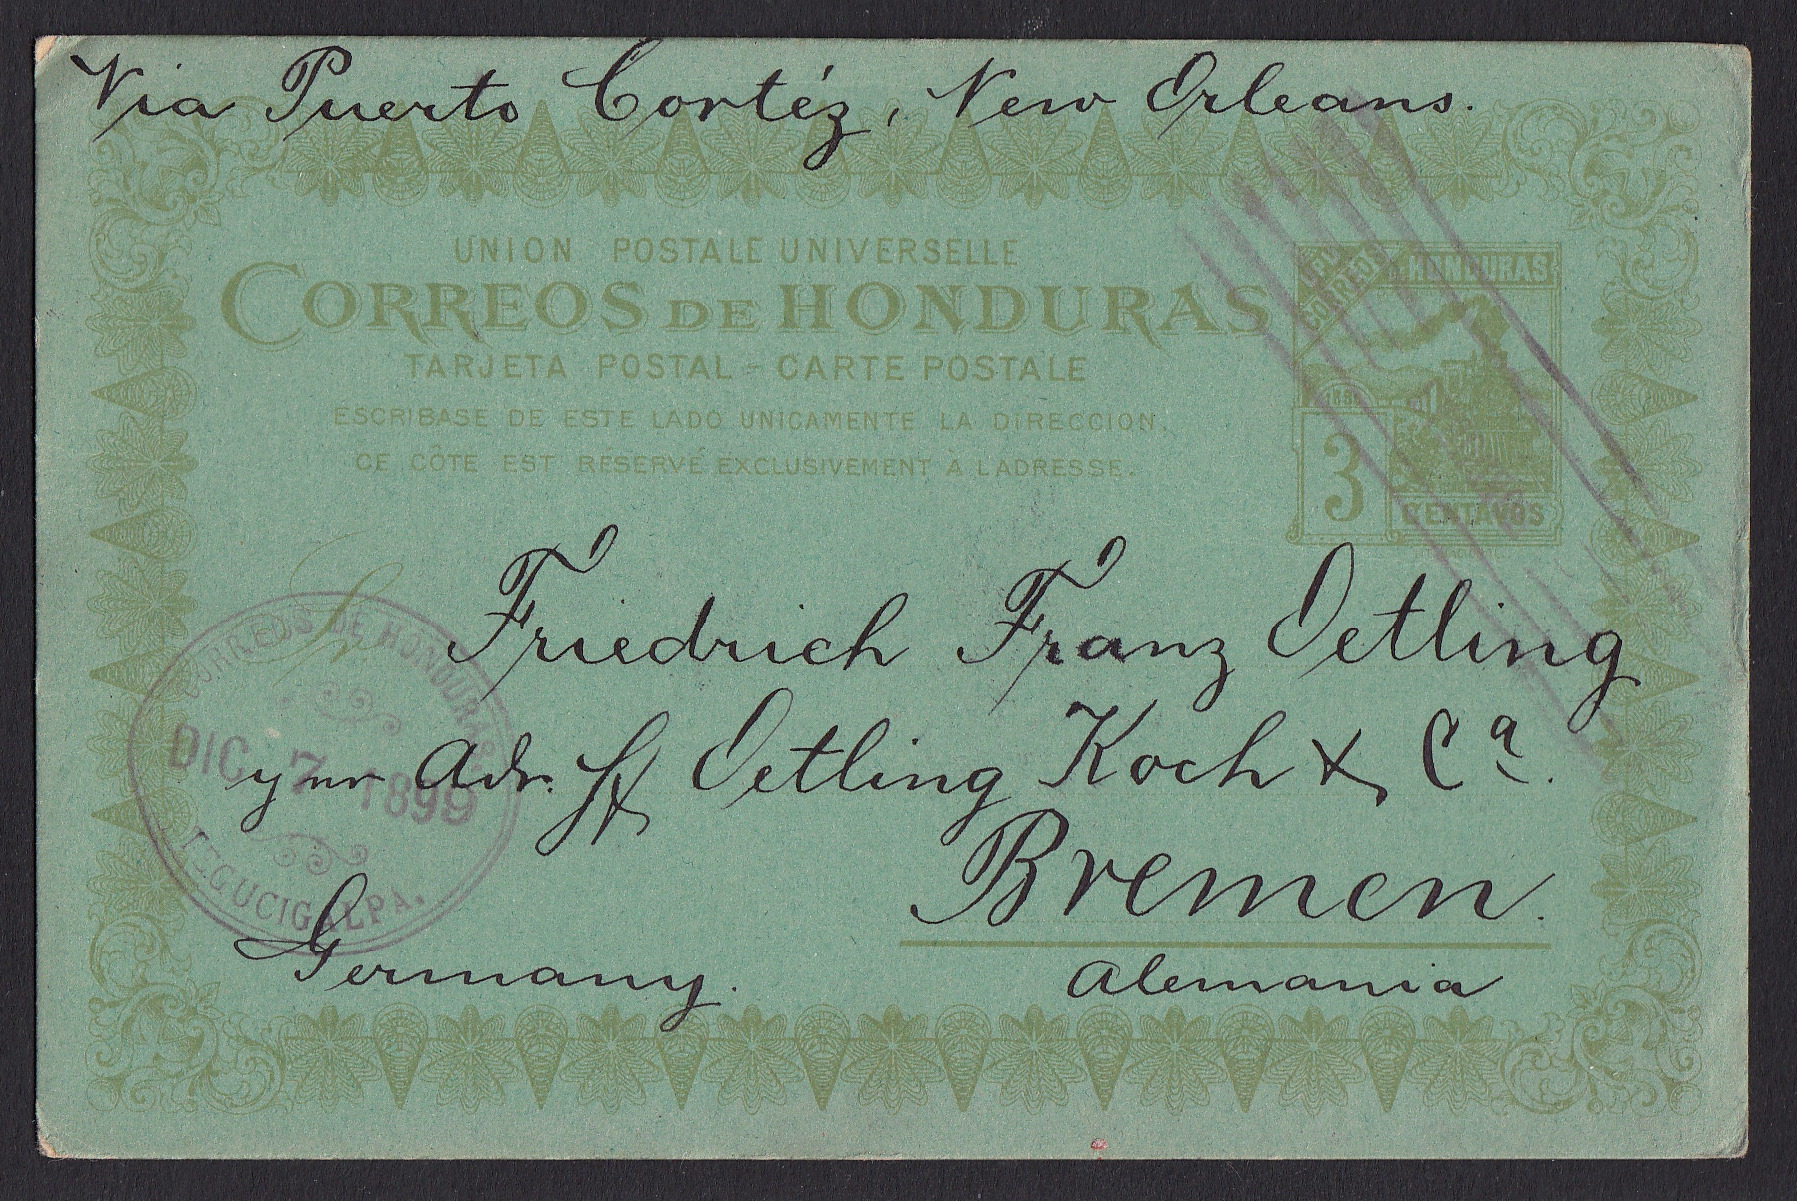 Via Puerto Cortéz, New Orleans.
UNION POSTALE UNIVERSELLE
CORREOS DE HONDURAS
TARJETA POSTAL - CARTE POSTALE
ESCRIBASE DE ESTE LADO UNICAMENTE LA DIRECCION.
CE CÔTE EST RESERVÉ EXCLUSIVEMENT À L'ADRESSE.
HONDURAS
3
CENTAVOS
Friedrich Franz Oetling
Adr. Oetling Koch & Cª.
Bremen.
Germany.
Alemania
CORREOS DE HONDURAS
DIC 7 1899
TEGUCIGALPA.